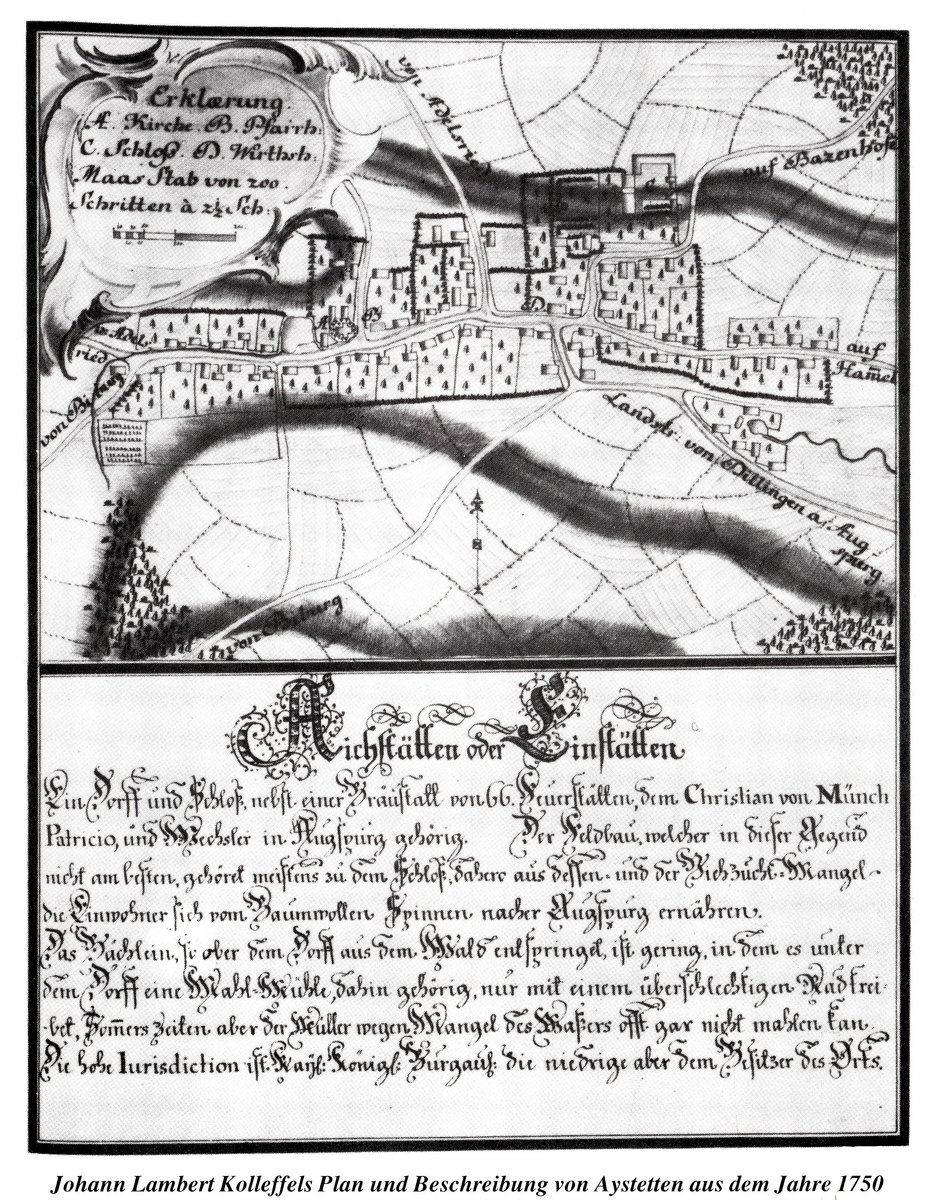 Erklærung.
Æ. Kirche. B. Pfarrh:
C. Schloß. D. Wirthsh:
Maas Stab von 200.
Schritten à 2½ Sch:
von Adelsried
auf Bazenhofe
A
B
C
D
v. Adel,
ried
von Biburg
auf
Ham̅el
Landstr: von Dillingen a. Aug
spurg
von Biburg
Aichstätten oder Einstätten
Ein Dorff und Schloß, nebst einer Bräustatt von 66. Feuerstätten, dem Christian von Münch
Patricio, und Wechsler in Augspurg gehörig. Der Feldbau, welcher in dieser Gegend
nicht am besten, gehöret meistens zu dem Schloß, dahero aus dessen- und der Viehzucht-Mangel
die Einwohner sich vom Baumwollen Spinnen nacher Augspurg ernähren.
Das Bächlein, so ober dem Dorff aus dem Wald entspringet, ist gering, in dem es unter
dem Dorff eine Mahl-Mühle, dahin gehörig, nur mit einem überschlechtigen Rad trei-
-bet, Som̅ers zeiten aber der Müller wegen Mangel des Waßers offt gar nicht mahlen kan.
Die hohe Iurisdiction ist Kaÿl: Königl: Burgauis: die niedrige aber dem Besitzer des Orts.
Johann Lambert Kolleffels Plan und Beschreibung von Aystetten aus dem Jahre 1750